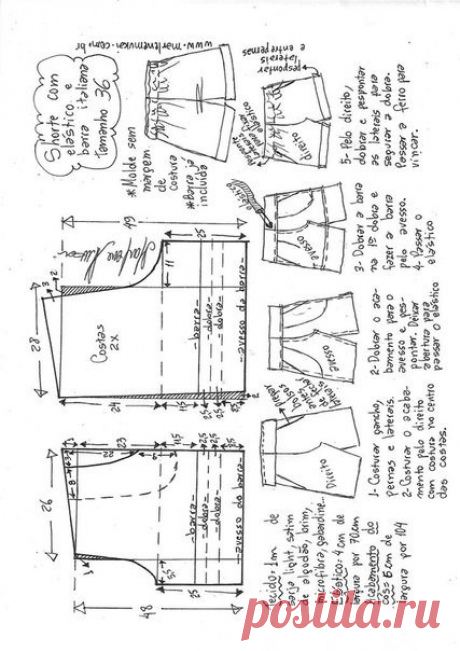 www.marlenemukai.com.br
Shorte com
elástico e
barra italiana
tamanho 36
*Molde sem
margem
de
costura
*Barra já
incluída
pespontar
laterais
e entrepernas
direito
5-Pelo direito,
dobrar e pespontar
as laterais para
segurar a dobra.
Passar a ferro para
vincar.
49
25
11
3
2
28
Costas
2x
-barra-
-dobra-
-dobra-
-avesso da barra-
24
15
2,5
elástico
avesso
3-Dobrar a barra
na 1ª dobra e
fazer a barra
pelo avesso.
4-Passar o
elástico
avesso
2-Dobrar o aca-
bamento para o
avesso e pes-
pontar. Deixar
abertura para
passar o elástico
26
23
22
8
15
2,5
-barra-
-dobra-
-dobra-
-avesso da barra-
1
25
48
pregar
bolsos
Direito
1-Costurar gancho,
pernas e laterais.
2-Costurar o acaba-
mento pelo direito
com costura no centro
das costas.
Tecido: 1m de
sarja light, setim
de algodão, brim,
microfibra, gabardine...
Elástico: 4cm de
largura por 70cm
Acabamento do
cós: 6cm de
largura por 104
posila.ru